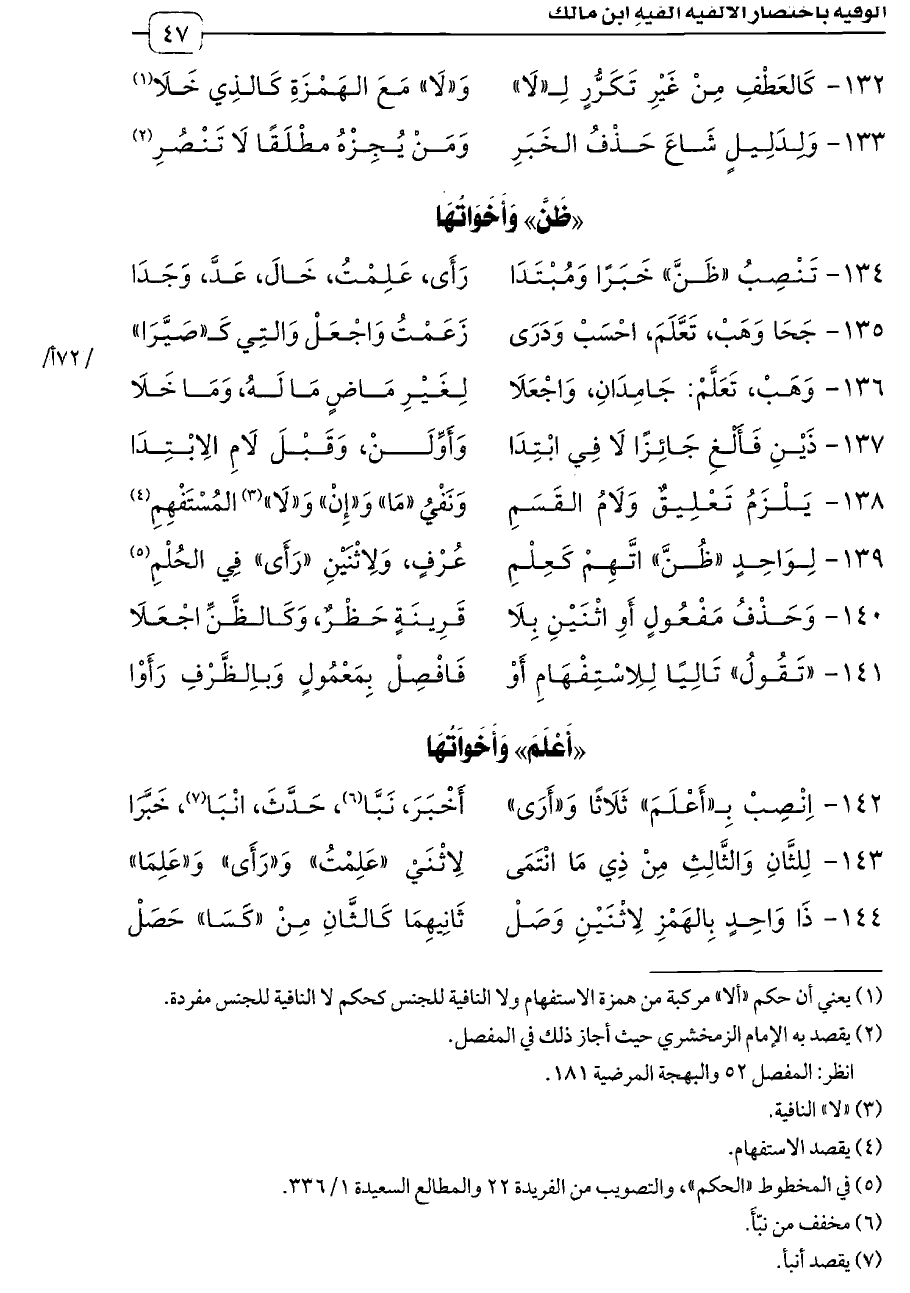 الوفية باختصار الألفية ألفية ابن مالك
٤٧
١٣٢- كَالعَطْفِ مِنْ غَيْرِ تَكَرُّرٍ لِـ«لَا» وَ«لَا» مَعَ الهَمْزَةِ كَالذِي خَلَا(١)
١٣٣- وَلِدَلِيلٍ شَاعَ حَذْفُ الخَبَرِ وَمَنْ يُجِزْهُ مطْلَقًا لَا تَنْصُرِ(٢)
«ظَنَّ» وَأَخَوَاتُهَا
١٣٤- تَنْصِبُ «ظَنَّ» خَبَرًا وَمُبْتَدَا رَأَى، عَلِمْتُ، خَالَ، عَدَّ، وَجَدَا
١٣٥- جَحَا وَهَبْ، تَعَّلَمَ، احْسَبْ وَدَرَى زَعَمْتُ وَاجْعَلْ وَالتِي كَـ«صَيَّرَا»
/٧٢أ/
١٣٦- وَهَبْ، تَعَلَّمْ: جَامِدَانِ، وَاجْعَلَا لِغَيْرِ مَاضٍ مَا لَهُ، وَمَا خَلَا
١٣٧- ذَيْنِ فَأَلْغِ جَائِزًا لَا فِي ابْتِدَا وَأَوِّلَنْ، وَقَبْلَ لَامِ الِابْتِدَا
١٣٨- يَلْزَمُ تَعْلِيقٌ وَلَامُ القَسَمِ وَنَفْيُ «مَا» وَ«إِنْ» وَ«لَا»(٣) المُسْتَفْهِمِ(٤)
١٣٩- لِوَاحِدٍ «ظُنَّ» اتَّهِمْ كَعِلْمِ عُرْفٍ، وَلِاثْنَيْنِ «رَأَى» فِي الحُلْمِ(٥)
١٤٠- وَحَذْفُ مَفْعُولٍ أَوِ اثْنَيْنِ بِلَا قَرِينَةٍ حَظْرٌ، وَكَالظَّنِّ اجْعَلَا
١٤١- «تَقُولُ» تَالِيًا لِلِاسْتِفْهَامِ أَوْ فَافْصِلْ بِمَعْمُولٍ وَبِالظَّرْفِ رَأَوْا
«أَعْلَمَ» وَأَخَوَاتُهَا
١٤٢- اِنْصِبْ بِـ«أَعْلَمَ» ثَلَاثًا وَ«أَرَى» أَخْبَرَ، نَبَّا(٦)، حَدَّثَ، انْبَا(٧)، خَبَّرَا
١٤٣- لِلثَّانِ وَالثَّالِثِ مِنْ ذِي مَا انْتَمَى لِاثْنَيْ «عَلِمْتُ» وَ«رَأَى» وَ«عَلِمَا»
١٤٤- ذَا وَاحِدٍ بِالهَمْزِ لِاثْنَيْنِ وَصَلْ ثَانِيهِمَا كَالثَّانِ مِنْ «كَسَا» حَصَلْ
(١) يعني أن حكم «ألا» مركبة من همزة الاستفهام ولا النافية للجنس كحكم لا النافية للجنس مفردة.
(٢) يقصد به الإمام الزمخشري حيث أجاز ذلك في المفصل.
انظر: المفصل ٥٢ والبهجة المرضية ١٨١.
(٣) «لا» النافية.
(٤) يقصد الاستفهام.
(٥) في المخطوط «الحكم»، والتصويب من الفريدة ٢٢ والمطالع السعيدة ١/ ٣٣٦.
(٦) مخفف من نبّأ.
(٧) يقصد أنبأ.